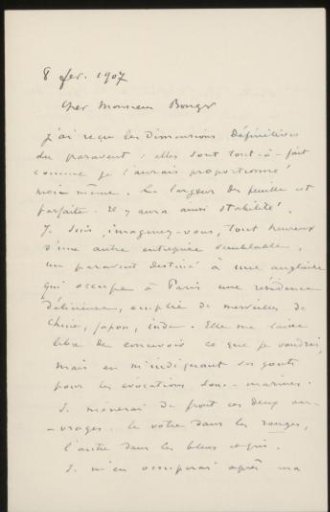 8 fev. 1907
Cher Monsieur Bonger
J'ai reçu les Dimensions Définitives
du paravent ; elles sont tout-à-fait
comme je l'aurais proportionné
moi-même. La largeur des feuilles est
parfaite. Il y aura aussi stabilité.
Je suis, imaginez-vous, tout heureux
d'une autre entreprise semblable,
un paravent destiné à une anglaise
qui occupe à Paris une résidence
délicieuse, emplie de merveilles de
Chine, Japon, Inde. Elle me laisse
libre de concevoir ce que je voudrai,
mais en m'indiquant ses goûts
pour les évocations sous-marines.
Je mènerai de front ces deux ou-
-vrages. le votre dans les rouges,
l'autre dans les bleus et gris.
Je m'en occuperai après ma